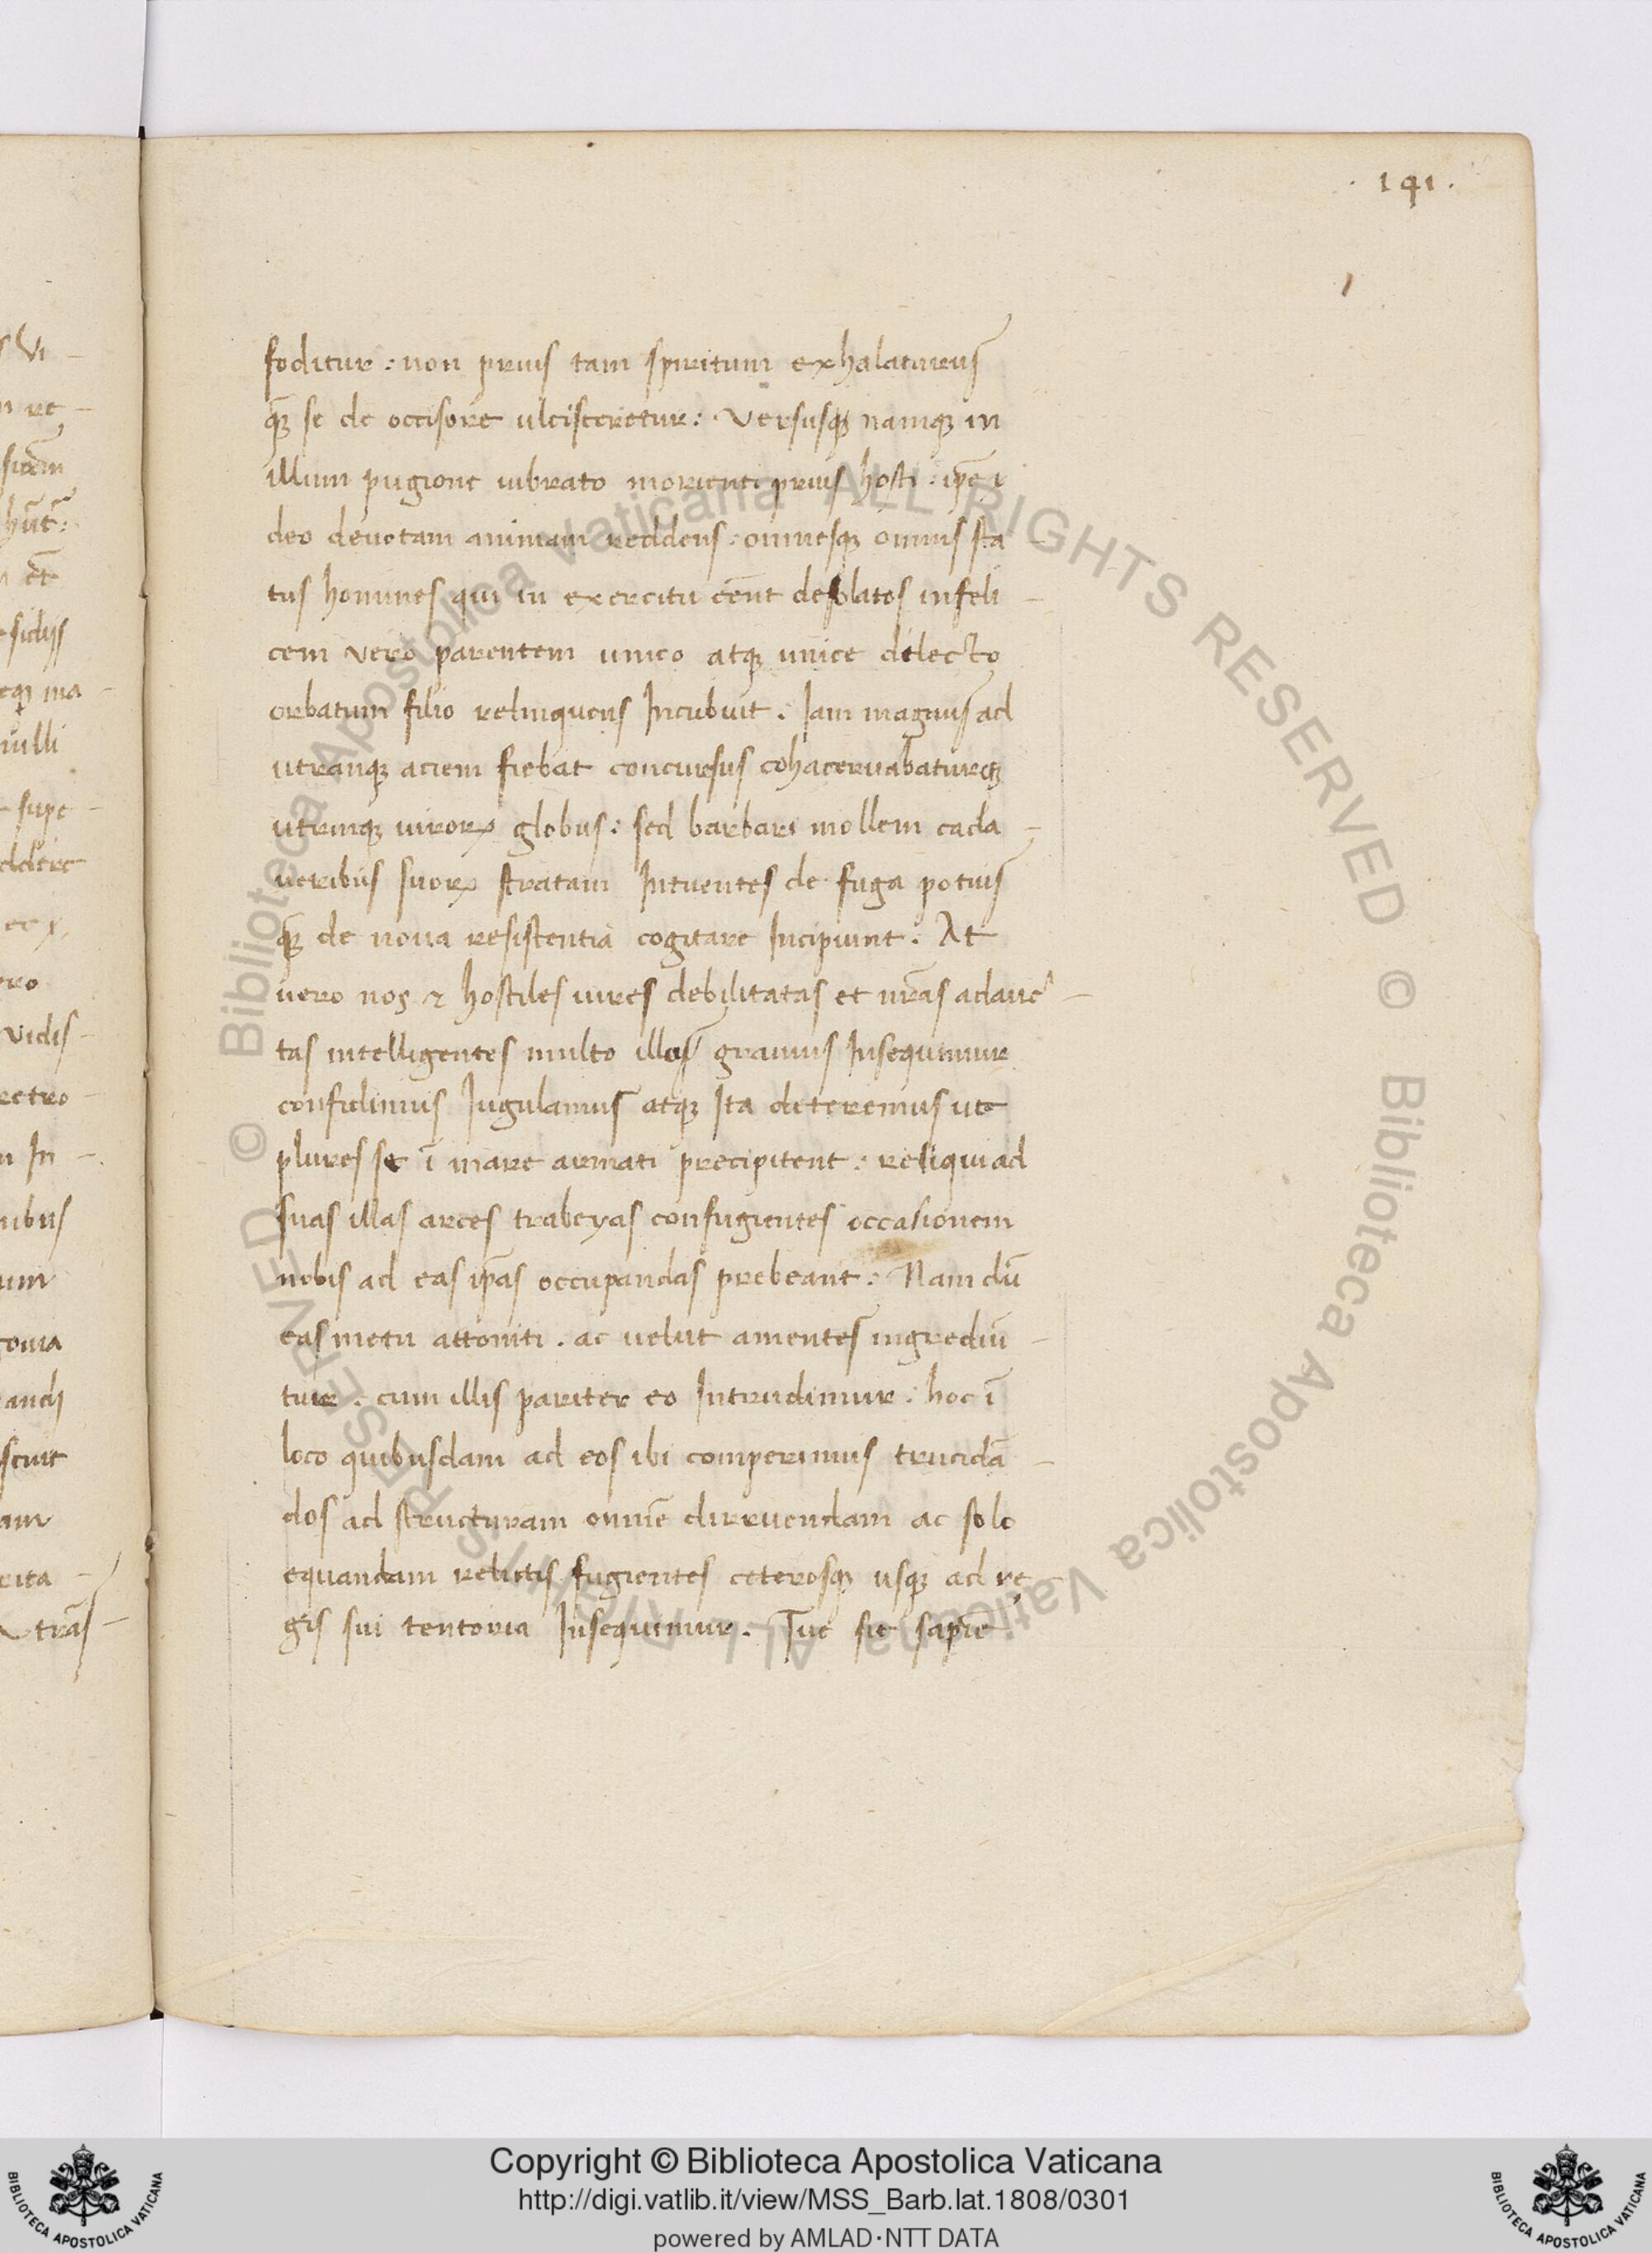 .141.
foditur : non prius tam spiritum exhalaturus
qꝫ se de occisore ulcisceretur : Versusqꝫ namqꝫ in
illum pugione uibrato morienti prius hosti : ip̄e ı
deo deuotam animam reddens : omnesqꝫ omnis sta
tus homines qui in exercitu eēnt desolatos infeli -
cem vero parentem unico atqꝫ unice delecto
orbatum filio relinquens Incubuit . Iam magnus ad
utranqꝫ aciem fiebat concursus cohaceruabaturqꝫ
utrinqꝫ uiroꝝ globus : sed barbari mollem cada -
ueribus suoꝝ stratam Intuentes de fuga potius
qꝫ de noua resistentia cogitare Incipiunt . At
uero nos ⁊ hostiles uires debilitatas et nr̄as adauc -
tas intelligentes multo illos grauius Insequimur
confidimus Iugulamus atqꝫ Ita deteremus ut
plures se ī mare armati precipitent : reliqui ad
suas illas arces trabeyas confugientes occasionem
nobis ad eas ip̄as occupandas prebeant : Nam dū
eas metu attoniti . ac velut amentes ingrediū -
tur . cum illis pariter eo Intrudimur : hoc ī
loco quibusdam ad eos ibi comperimus trucidā -
dos ad structuram omnē dirruendam ac solo
equandam relictis fugientes ceterosqꝫ usqꝫ ad re -
gis sui tentoria Insequimur . Tuc sic sapiē
s Vi -
n re -
hūt :
n et
sidijs
eqꝫ ma -
nulli
- supe -
ddere
ero
vidis -
retro -
n In -
nibus
um
am
rita -
vtrās -
Copyright © Biblioteca Apostolica Vaticana
http://digi.vatlib.it/view/MSS_Barb.lat.1808/0301
powered by AMLAD·NTT DATA
BIBLIOTECA APOSTOLICA VATICANA
BIBLIOTECA APOSTOLICA VATICANA
© Biblioteca Apostolica Vaticana ALL RIGHTS RESERVED © Biblioteca Apostolica Vaticana ALL RIGHTS RESERVED